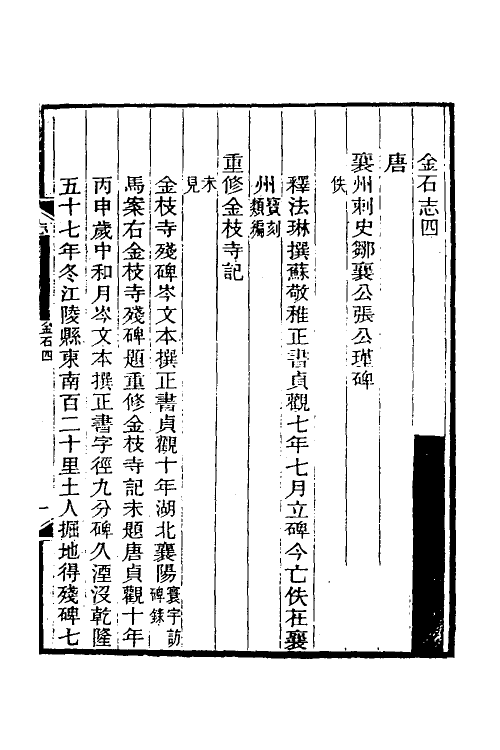 金石志四
唐
襄州刺史鄒襄公張公瑾碑
佚
釋法琳撰蘇敬稚正書貞觀七年七月立碑今亡佚在襄
州寶刻類編
重修金枝寺記
未見
金枝寺殘碑岑文本撰正書貞觀十年湖北襄陽寰宇訪碑錄
馬案右金枝寺殘碑題重修金枝寺記末題唐貞觀十年
丙申歲中和月岑文本撰正書字徑九分碑久湮沒乾隆
五十七年冬江陵縣東南百二十里土人掘地得殘碑七
志
金石四
一